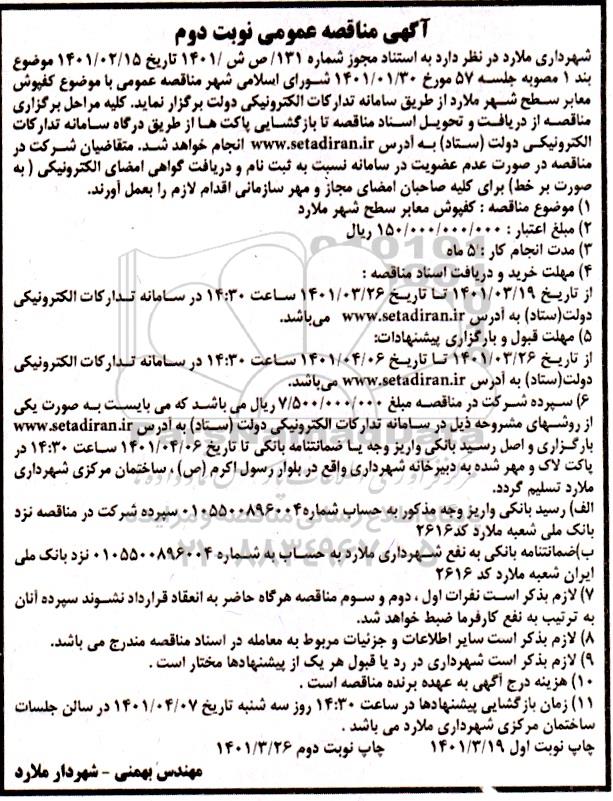 آگهی مناقصه عمومی نوبت دوم
شهرداری ملارد در نظر دارد به استناد مجوز شماره ۱۳۱/ ص ش /۱۴۰۱ تاریخ ۱۴۰۱/۰۲/۱۵ موضوع
بند ۱ مصوبه جلسه ۵۷ مورخ ۱۴۰۱/۰۱/۳۰ شورای اسلامی شهر مناقصه عمومی با موضوع کفپوش
معابر سطح شهر ملارد از طریق سامانه تدارکات الکترونیکی دولت برگزار نماید. کلیه مراحل برگزاری
مناقصه از دریافت و تحویل اسناد مناقصه تا بازگشایی پاکت ها از طریق درگاه سامانه تدارکات
الکترونیکی دولت (ستاد) به آدرس www.setadiran.ir انجام خواهد شد. متقاضیان شرکت در
مناقصه در صورت عدم عضویت در سامانه نسبت به ثبت نام و دریافت گواهی امضای الکترونیکی ( به
صورت بر خط) برای کلیه صاحبان امضای مجاز و مهر سازمانی اقدام لازم را بعمل آورند.
۱) موضوع مناقصه : کفپوش معابر سطح شهر ملارد
۲) مبلغ اعتبار : ۱۵۰/۰۰۰/۰۰۰/۰۰۰ ریال
۳) مدت انجام کار : ۵ ماه
۴) مهلت خرید و دریافت اسناد مناقصه :
از تاریخ ۱۴۰۱/۰۳/۱۹ تا تاریخ ۱۴۰۱/۰۳/۲۶ ساعت ۱۴:۳۰ در سامانه تدارکات الکترونیکی
دولت(ستاد) به آدرس www.setadiran.ir می‌باشد.
۵) مهلت قبول و بارگزاری پیشنهادات:
از تاریخ ۱۴۰۱/۰۳/۲۶ تا تاریخ ۱۴۰۱/۰۴/۰۶ ساعت ۱۴:۳۰ در سامانه تدارکات الکترونیکی
دولت(ستاد) به آدرس www.setadiran.ir می‌باشد.
۶) سپرده شرکت در مناقصه مبلغ ۷/۵۰۰/۰۰۰/۰۰۰ ریال می باشد که می بایست به صورت یکی
از روشهای مشروحه ذیل در سامانه تدارکات الکترونیکی دولت (ستاد) به آدرس www.setadiran.ir
بارگزاری و اصل رسید بانکی واریز وجه یا ضمانتنامه بانکی تا تاریخ ۱۴۰۱/۰۴/۰۶ ساعت ۱۴:۳۰ در
پاکت لاک و مهر شده به دبیرخانه شهرداری واقع در بلوار رسول اکرم (ص) ، ساختمان مرکزی شهرداری
ملارد تسلیم گردد.
الف) رسید بانکی واریز وجه مذکور به حساب شماره ۰۱۰۵۵۰۰۸۹۶۰۰۴ سپرده شرکت در مناقصه نزد
بانک ملی شعبه ملارد کد ۲۶۱۶
ب)ضمانتنامه بانکی به نفع شهرداری ملارد به حساب به شماره ۰۱۰۵۵۰۰۸۹۶۰۰۴ نزد بانک ملی
ایران شعبه ملارد کد ۲۶۱۶
۷) لازم بذکر است نفرات اول ، دوم و سوم مناقصه هرگاه حاضر به انعقاد قرارداد نشوند سپرده آنان
به ترتیب به نفع کارفرما ضبط خواهد شد.
۸) لازم بذکر است سایر اطلاعات و جزئیات مربوط به معامله در اسناد مناقصه مندرج می باشد.
۹) لازم بذکر است شهرداری در رد یا قبول هر یک از پیشنهادها مختار است .
۱۰) هزینه درج آگهی به عهده برنده مناقصه است .
۱۱) زمان بازگشایی پیشنهادها در ساعت ۱۴:۳۰ روز سه شنبه تاریخ ۱۴۰۱/۰۴/۰۷ در سالن جلسات
ساختمان مرکزی شهرداری ملارد می باشد .
چاپ نوبت اول ۱۴۰۱/۳/۱۹ چاپ نوبت دوم ۱۴۰۱/۳/۲۶
مهندس بهمنی - شهردار ملارد